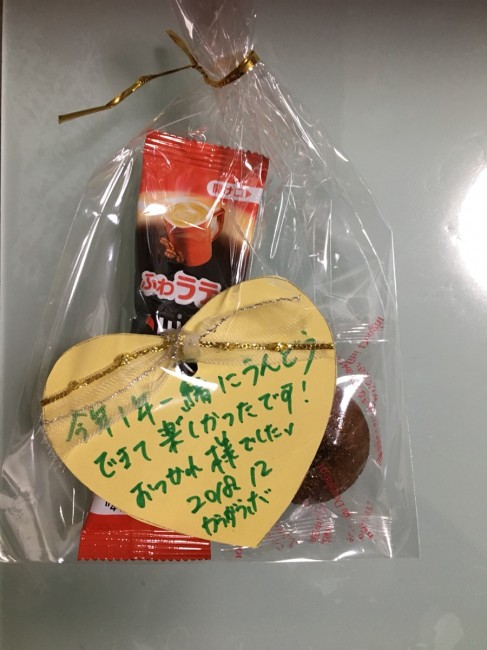 開け口
ふわラテ
今年1年一緒にうんどう
できて楽しかったです!
おつかれ様でした
2018.12